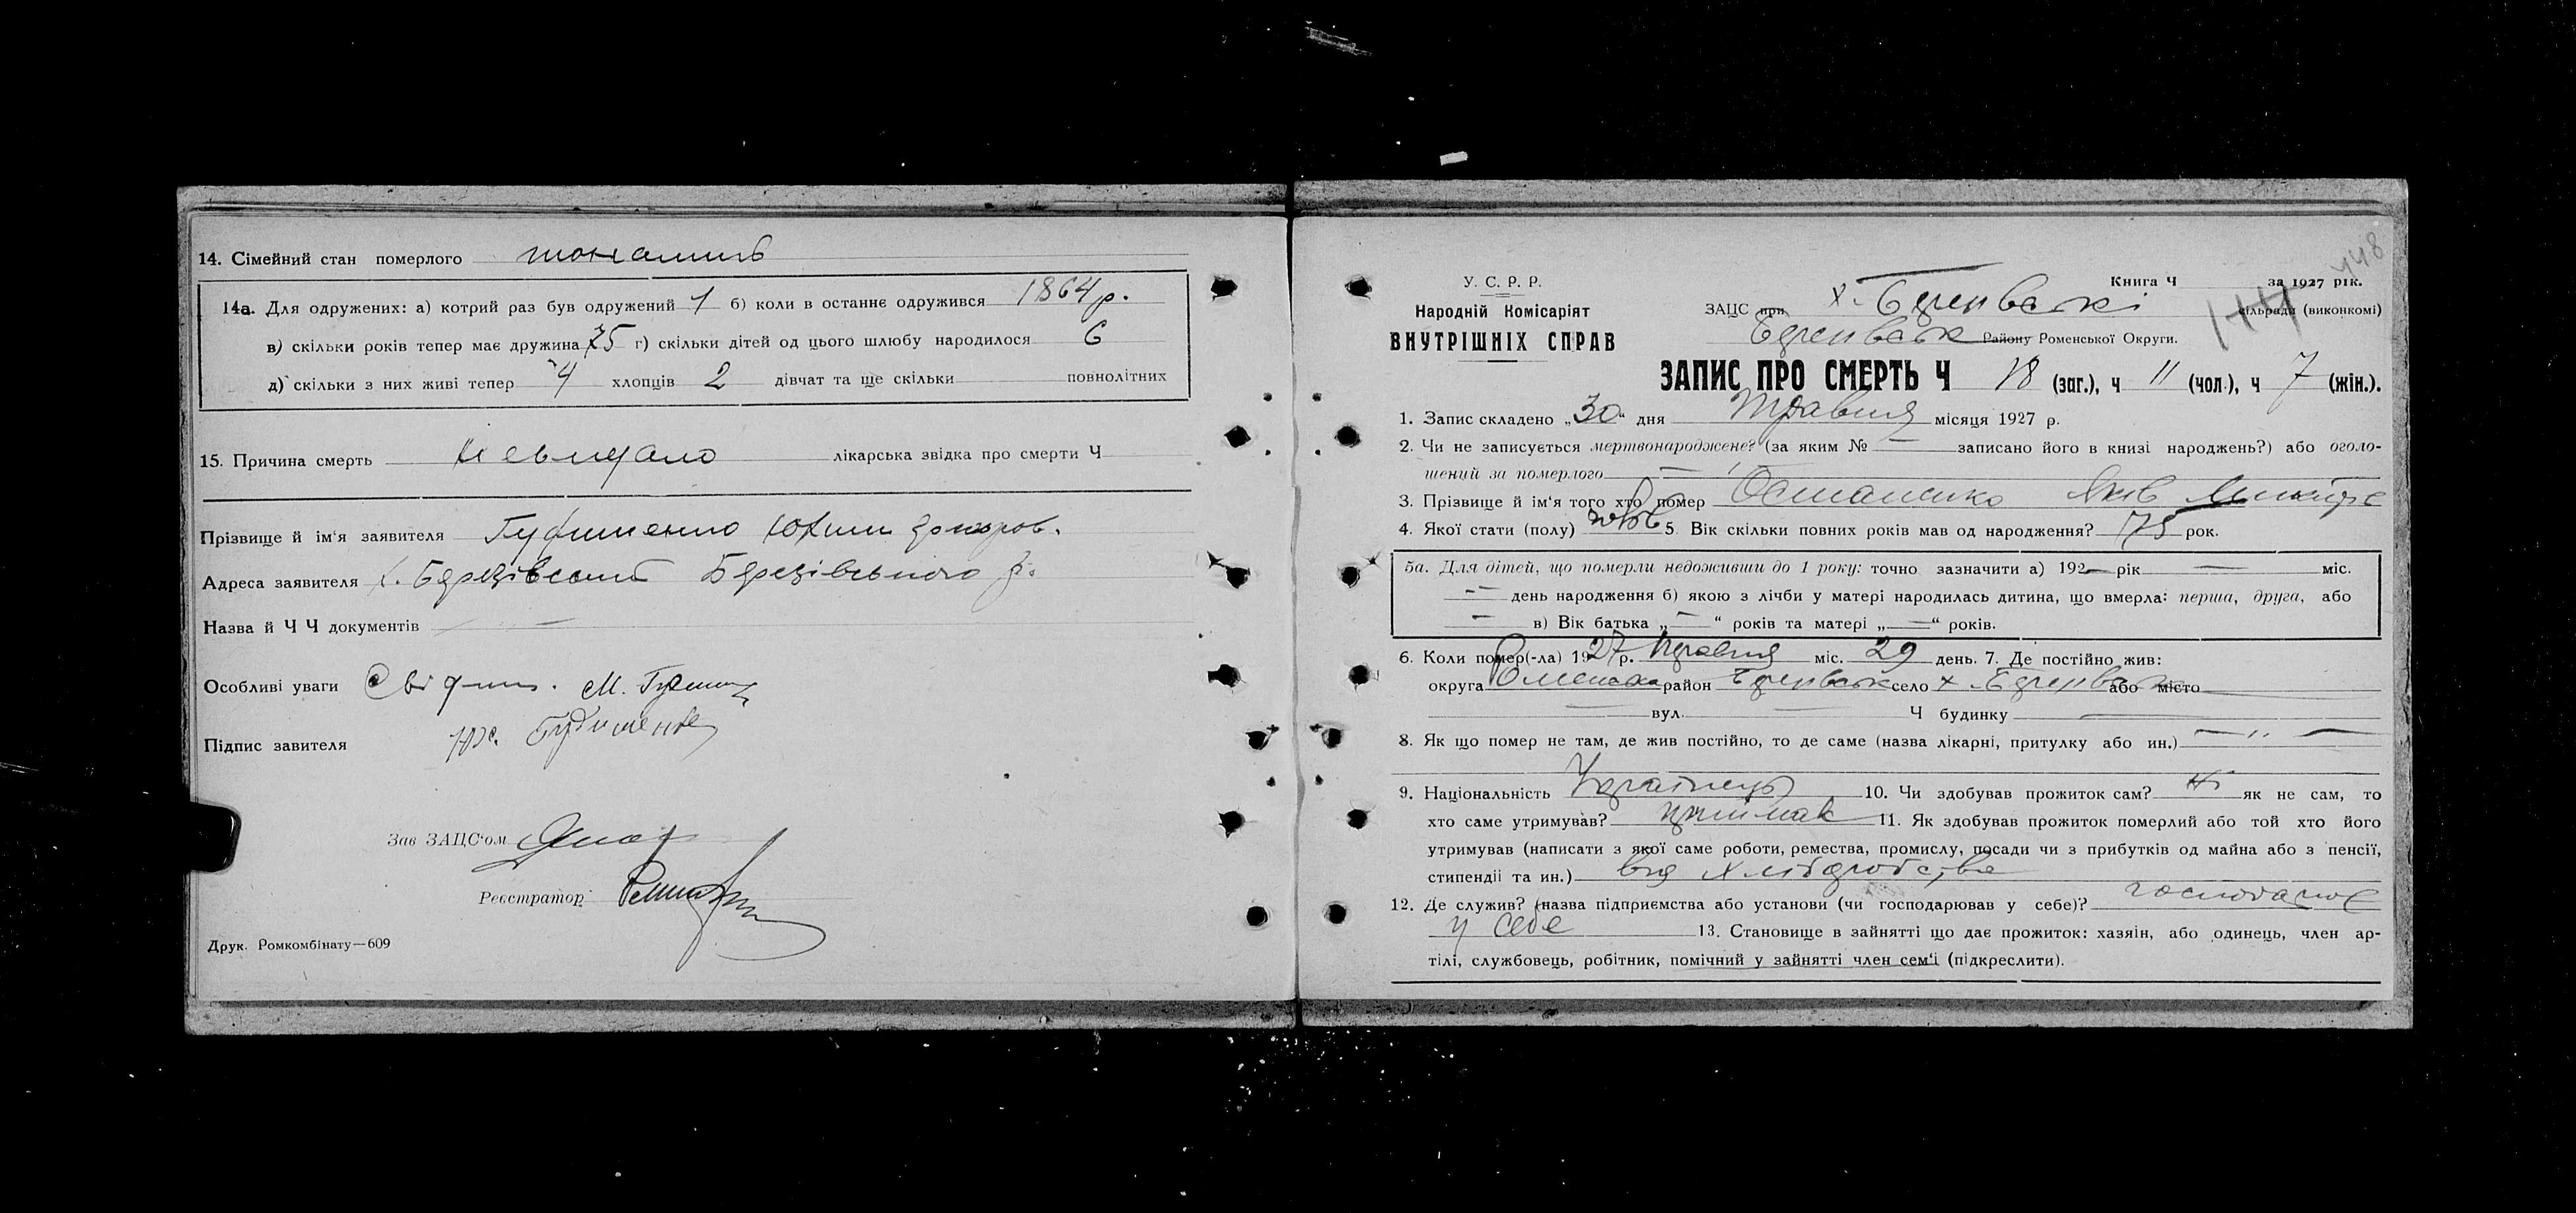 14. Сімейний стан померлого
14а. Для одружених: а) котрий раз був одружений 1 б) коли в останнє одружився 1864 р.
в) скільки років тепер має дружина 75 г) скільки дітей од цього шлюбу народилося 6
д) скільки з них живі тепер 4 хлопців 2 дівчат та ще скільки повнолітних
15. Причина смерть невидомо лікарська звідка про смерти Ч
Прізвище й ім'я заявителя
Адреса заявителя х. Березівський Березівського р.
Назва й Ч Ч документів —
Особливі уваги М.
Підпис завителя
Зав ЗАЦС'ом
Реєстратор
Друк. Ромкомбінату—609
448
У. С. Р. Р.
Народній Комісаріят
ВНУТРІШНІХ СПРАВ
Книга Ч за 1927 рік.
ЗАЦС при х. сільради (виконкомі)
Району Роменської Округи.
ЗАПИС ПРО СМЕРТЬ Ч 18 (заг.), ч 11 (чол.), ч 7 (жін.).
1. Запис складено „30“ дня Травня місяця 1927 р.
2. Чи не записується мертвонароджене? (за яким № — записано його в книзі народжень?) або оголо-
шений за померлого — " —
3. Прізвище й ім'я того хто помер Осташенко Яків
4. Якої стати (полу) 5. Вік скільки повних років мав од народження? 75 рок.
5а. Для дітей, що померли недоживши до 1 року: точно зазначити а) 192— рік — міс.
— день народження б) якою з лічби у матері народилась дитина, що вмерла: перша, друга, або
— в) Вік батька „—“ років та матері „—“ років.
6. Коли помер(-ла) 1927 р. Травня міс. 29 день. 7. Де постійно жив:
округа Роменська район село х. або місто
— вул. — Ч будинку —
8. Як що помер не там, де жив постійно, то де саме (назва лікарні, притулку або ин.) — " —
9. Національність Українець 10. Чи здобував прожиток сам? ні як не сам, то
хто саме утримував? приймак 11. Як здобував прожиток померлий або той хто його
утримував (написати з якої саме роботи, ремества, промислу, посади чи з прибутків од майна або з пенсії,
стипендії та ин.) від хліборобства
12. Де служив? (назва підприємства або установи (чи господарював у себе)?
у себе 13. Становище в зайнятті що дає прожиток: хазяїн, або одинець, член ар-
тілі, службовець, робітник, помічний у зайнятті член сем'ї (підкреслити).